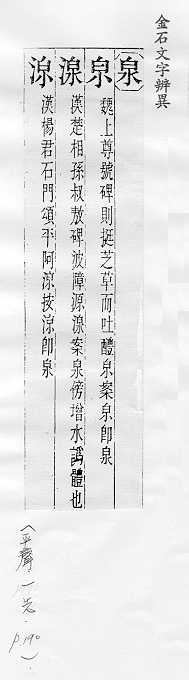 金石文字辨異
泉
泉 魏上尊號碑則挺芝草而吐醴泉案泉即泉
湶 漢楚相孫叔敖碑波障源湶案泉傍增水譌體也
涼 漢楊君石門頌平阿涼按涼即泉
(平聲.一先.p.190)